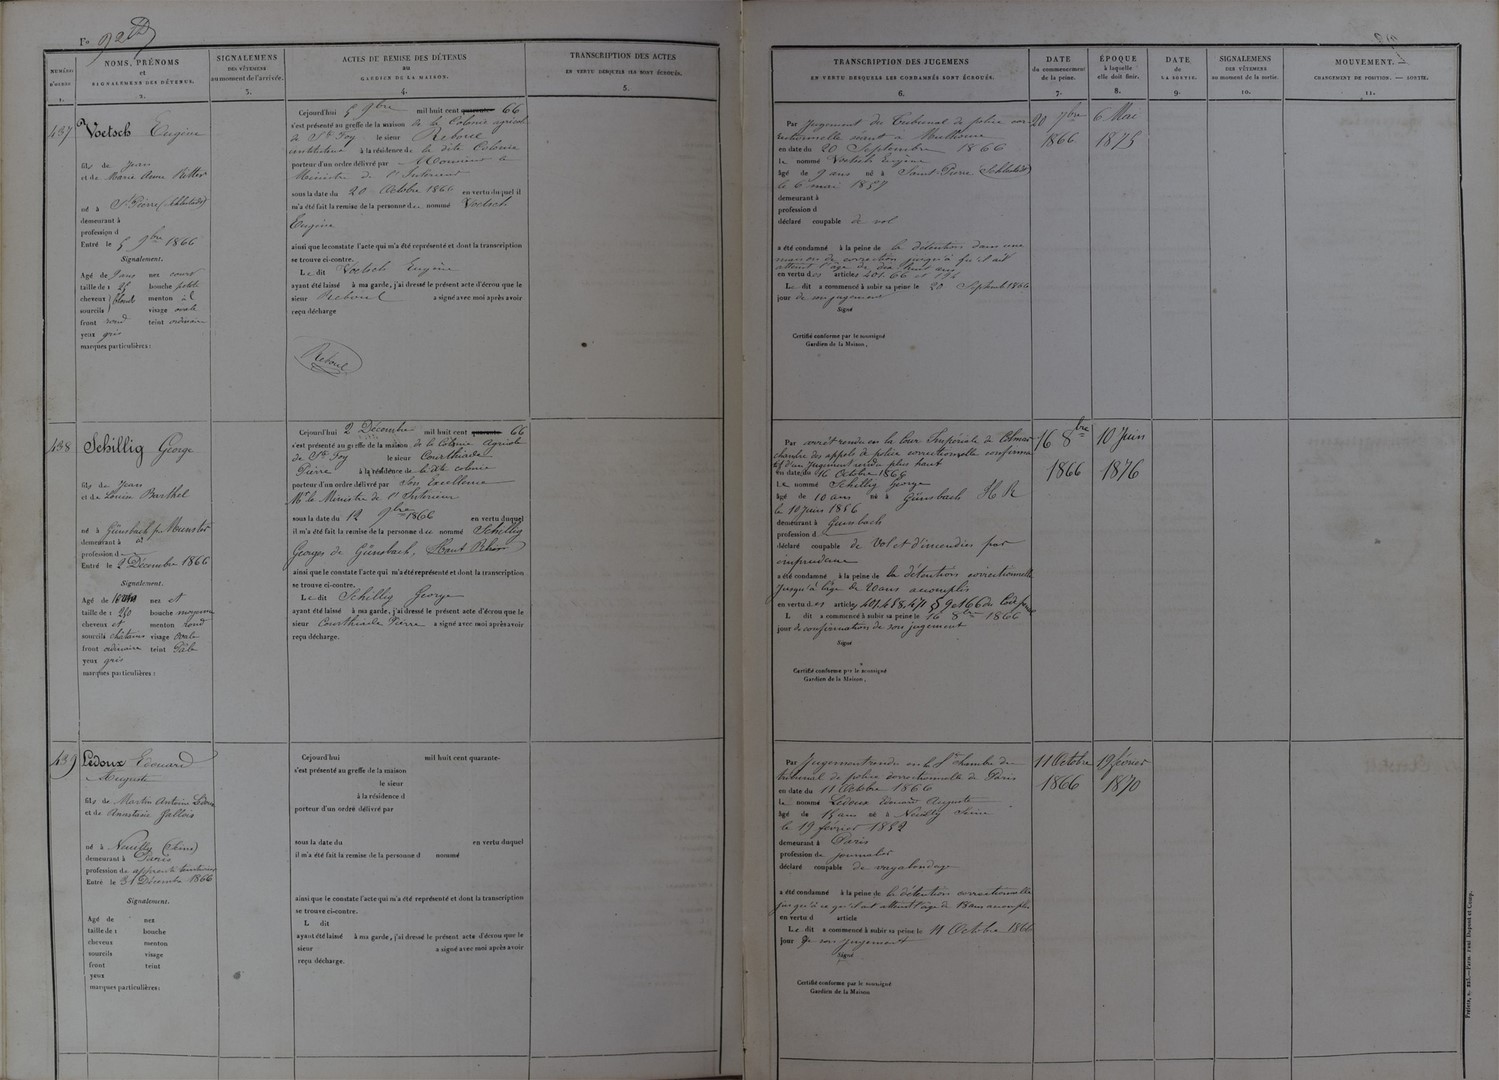 Fo 92
NUMÉRO D'ORDRE 1.
NOMS, PRÉNOMS et SIGNALEMENS DES DÉTENUS. 2.
SIGNALEMENS DES VÊTEMENS au moment de l'arrivée. 3.
ACTES DE REMISE DES DÉTENUS AU GARDIEN DE LA MAISON. 4.
TRANSCRIPTION DES ACTES EN VERTU DESQUELS ILS SONT ÉCROUÉS. 5.
TRANSCRIPTION DES JUGEMENS EN VERTU DESQUELS LES CONDAMNÉS SONT ÉCROUÉS. 6.
DATE du commencement de la peine. 7.
ÉPOQUE à laquelle elle doit finir. 8.
DATE de LA SORTIE. 9.
SIGNALEMENS DES VÊTEMENS au moment de la sortie. 10.
MOUVEMENT. CHANGEMENT DE POSITION. — SORTIE. 11.
437
Voetsch Eugène
fils de Jean
et de Marie Anne
né à St Pierre
demeurant à
profession d
Entré le 5 9bre 1866
Signalement.
Agé de 9 ans nez court
taille de 1 bouche petite
cheveux blonds menton
sourcils visage ovale
front rond teint ordinaire
yeux gris
marques particulières :
Cejourd'hui 5 9bre mil huit cent quarante 66
s'est présenté au greffe de la maison de la Colonie agricole
de Ste Foy le sieur Reboul
instituteur à la résidence de la dite Colonie
porteur d'un ordre délivré par Monsieur le
Ministre de l'Intérieur
sous la date du 20 Octobre 1866 en vertu duquel il
m'a été fait la remise de la personne du nommé Voetsch
Eugène
ainsi que le constate l'acte qui m'a été représenté et dont la transcription
se trouve ci-contre.
Le dit Voetsch Eugène
ayant été laissé à ma garde, j'ai dressé le présent acte d'écrou que le
sieur Reboul a signé avec moi après avoir
reçu décharge
Reboul
Par Jugement du Tribunal de police cor-
rectionnelle séant à Mulhouse
en date du 20 Septembre 1866
le nommé Voetsch Eugène
âgé de 9 ans né à Saint-Pierre
le 6 mai 1857
demeurant à
profession d
déclaré coupable de vol
a été condamné à la peine de la détention dans une
maison de correction jusqu'à ce qu'il ait
atteint l'âge de dix huit ans
en vertu des articles 401. 66 et
Le dit a commencé à subir sa peine le 20 Septembre 1866
jour de son jugement
Signé
Certifié conforme par le soussigné
Gardien de la Maison.
20 7bre
1866
6 Mai
1875
438
Schillig George
fils de Jean
et de Louise Barthel
né à Günsbach par Munster
demeurant à id
profession d
Entré le 2 Décembre 1866
Signalement.
Agé de 10 ans nez
taille de 1 bouche moyenne
cheveux menton rond
sourcils châtains visage ovale
front ordinaire teint pâle
yeux gris
marques particulières :
Cejourd'hui 2 Décembre mil huit cent quarante 66
s'est présenté au greffe de la maison de la Colonie Agricole
de Ste Foy le sieur Courthiade
Pierre à la résidence de la dte colonie
porteur d'un ordre délivré par Son Excellence
Mr le Ministre de l'Intérieur
sous la date du 12 9bre 1866 en vertu duquel
il m'a été fait la remise de la personne du nommé Schillig
Georges de Günsbach, Haut Rhin
ainsi que le constate l'acte qui m'a été représenté et dont la transcription
se trouve ci-contre.
Le dit Schillig George
ayant été laissé à ma garde, j'ai dressé le présent acte d'écrou que le
sieur Courthiade Pierre a signé avec moi après avoir
reçu décharge.
Par arrêt rendu en la Cour Impériale de Colmar
chambre des appels de police correctionnelle
d'un Jugement rendu plus haut
en date du 16 Octobre 1866
Le nommé Schillig George
âgé de 10 ans né à Günsbach H R
le 10 juin 1856
demeurant à Gunsbach
profession d
déclaré coupable de Vol et d'incendies par
imprudence
a été condamné à la peine de la détention correctionnelle
jusqu'à l'âge de 20 ans accomplis
en vertu des articles 401. 458. 471 § 9 et 66 du Code pénal
L dit a commencé à subir sa peine le 16 8bre 1866
jour de confirmation de son jugement
Signé
Certifié conforme par le soussigné
Gardien de la Maison.
16 8bre
1866
10 Juin
1876
439
Lédoux Edouard
Auguste
fils de Martin Antoine Lédoux
et de Anastasie Gallois
né à Neuilly (Seine)
demeurant à Paris
profession de apprenti
Entré le 31 Décembre 1866
Signalement.
Agé de nez
taille de 1 bouche
cheveux menton
sourcils visage
front teint
yeux
marques particulières :
Cejourd'hui mil huit cent quarante-
s'est présenté au greffe de la maison
le sieur
à la résidence d
porteur d'un ordre délivré par
sous la date du en vertu duquel
il m'a été fait la remise de la personne d nommé
ainsi que le constate l'acte qui m'a été représenté et dont la transcription
se trouve ci-contre.
L dit
ayant été laissé à ma garde, j'ai dressé le présent acte d'écrou que le
sieur a signé avec moi après avoir
reçu décharge.
Par Jugement rendu en la chambre du
tribunal de police correctionnelle de Paris
en date du 11 Octobre 1866
le nommé Lédoux Edouard Auguste
âgé de ans né à Neuilly Seine
le 19 février 1852
demeurant à Paris
profession de journalier
déclaré coupable de vagabondage
a été condamné à la peine de la détention correctionnelle
jusqu'à ce qu'il ait atteint l'âge de 18 ans accomplis
en vertu d article
Le dit a commencé à subir sa peine le 11 Octobre 1866
jour de son jugement
Signé
Certifié conforme par le soussigné
Gardien de la Maison
11 Octobre
1866
19 février
1870
Paris.—Paul Dupont et Comp.